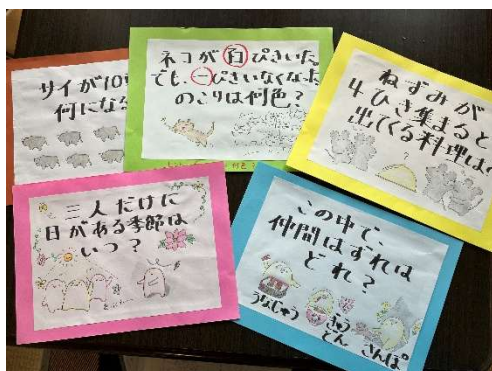 サイが10
何になる
ネコが百ぴきいた
でも、一ぴきいなくなった
のこりは何色？
ねずみが
4ひき集まると
出てくる料理は？
三人だけに
日がある季節は
いつ？
この中で、
仲間はずれは
どれ？
うなじゅう
きゅう
どん
さんぽ